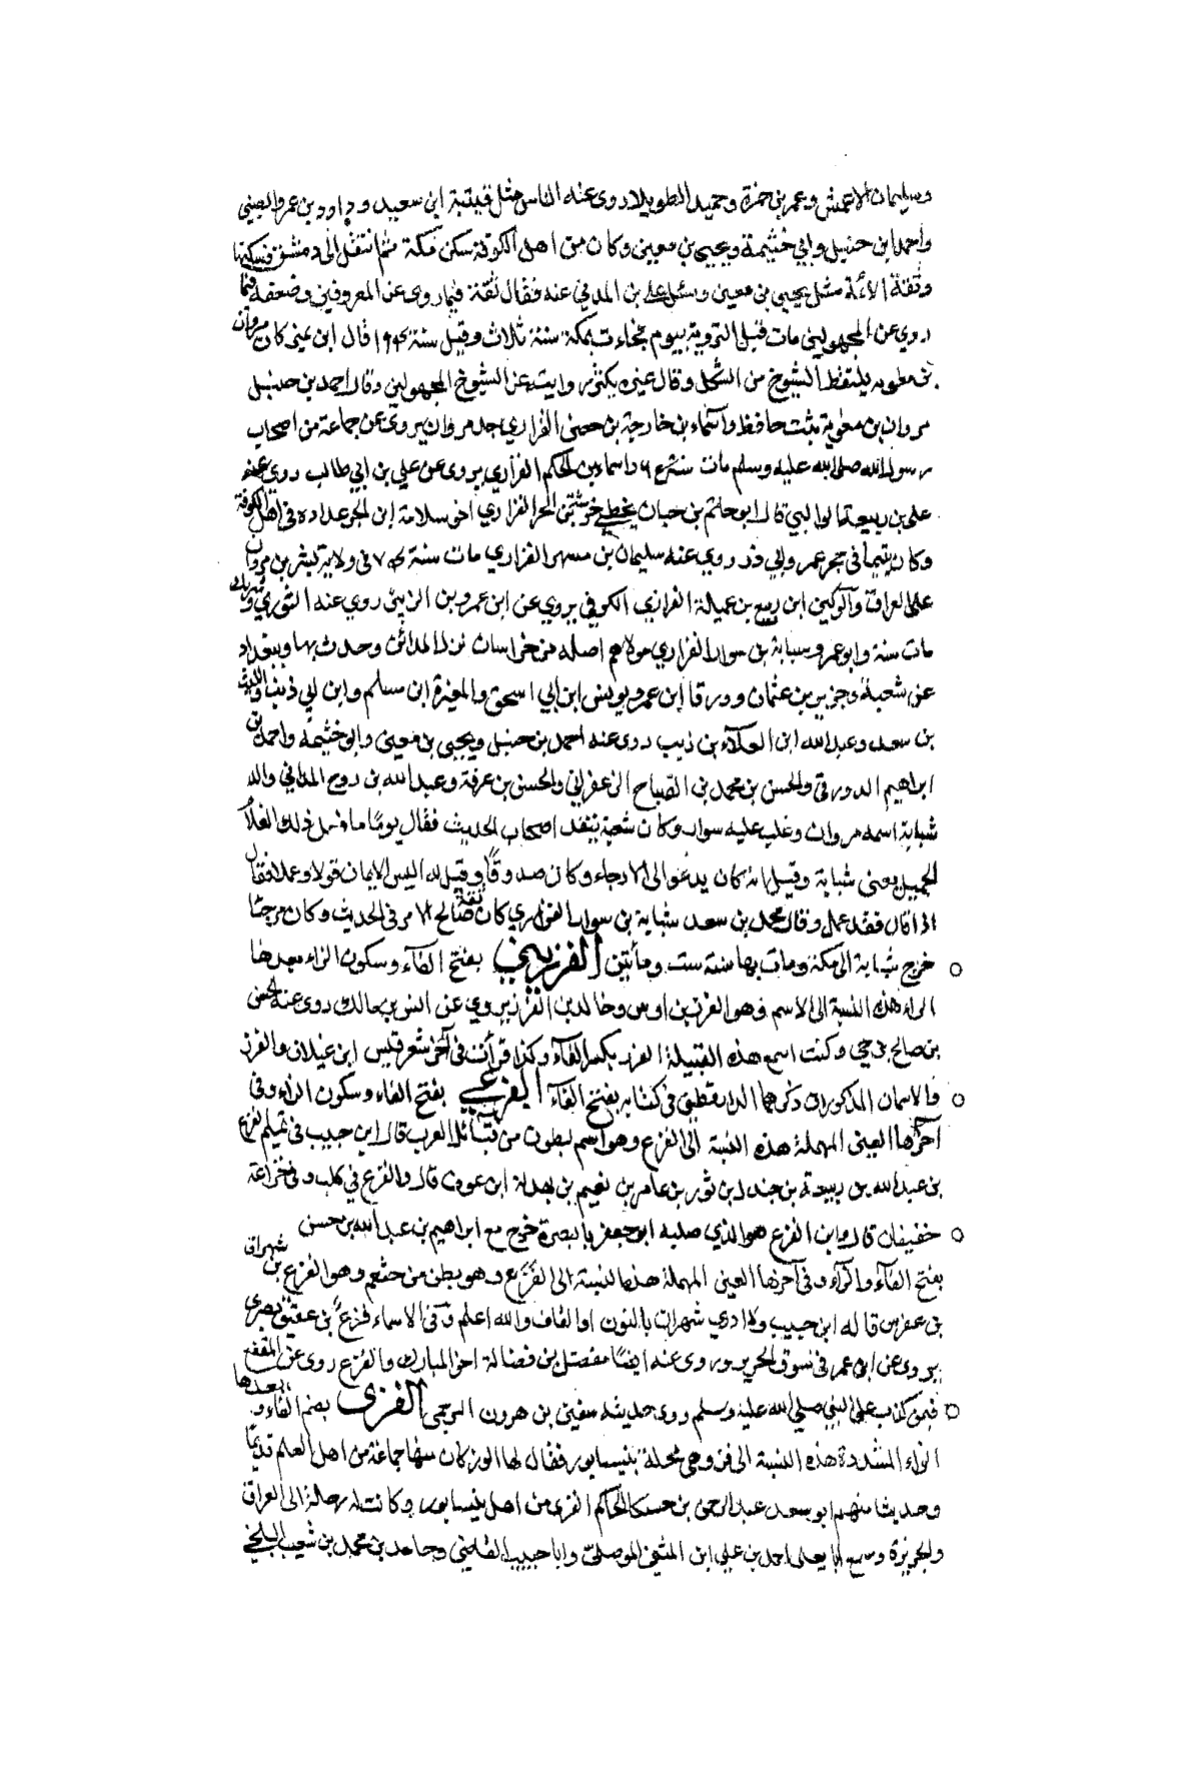 وسليمان الاعمش وعمر بن حمزة وحميد الطويل روى عنه الناس مثل قتيبة ابن سعيد وداود بن عمرو الضبي
واحمد ابن حنبل وابي خثيمة ويحيى بن معين وكان من اهل الكوفة سكن مكة ثم انتقل الى دمشق فسكنها
وثقة الائمة مثل يحيى بن معين وسئل علي بن المديني عنه فقال ثقة فيما روى عن المعروفين وضعفه فيما
روي عن المجهولين مات قبل التروية بيوم فجاءت بمكة سنة ثلاث وقيل سنة ١٩٤ قال ابن نمير كان مروان
بن معوية يلتقط الشيوخ من السكك وقال غيره يكثر روايته عن الشيوخ المجهولين وقال احمد بن حنبل
مروان بن معوية ثبت حافظ واسماء بن خارجة بن حصن الفزاري جد مروان يروى عن جماعة من اصحاب
رسول الله صلى الله عليه وسلم مات سنة واسماء بن الحكم الفزاري يروى عن علي بن ابي طالب روى عنه
علي بن ربيعة الوالبي قال ابو حاتم بن حبان يخطئ خرشة بن الحر الفزاري اخو سلامة ابن الحر عداده في اهل الكوفة
وكان يتيما في حجر عمر وابي ذر روى عنه سليمان بن مسهر الفزاري مات سنة ٧٤ في ولاية بشر بن مروان
على العراق والركين ابن ربيع بن عميلة الفزاري الكوفي يروي عن ابن عمر وبن الزبير روي عنه الثوري وشريك
مات سنة وابو عمرو شبابة بن سوار الفزاري مولاهم اصله من خراسان نزل المدائن وحدث بها وببغداد
عن شعبة وجرير بن عثمان وورقا ابن عمر ويونس ابن ابي اسحق والمغيرة ابن مسلم وابن ابي ذئب والليث
بن سعد وعبد الله ابن العلاء بن زيب روى عنه احمد بن حنبل ويحيى بن معين وابو خثيمة واحمد بن
ابراهيم الدورقي والحسن بن محمد بن الصباح الزعفراني والحسن بن عرفة وعبد الله بن روح المدائني والد
شبابة اسمه مروان وغلب عليه سوار وكان شعبة يتفقد اصحاب الحديث فقال يوما ما فعل ذلك الغلام
الجميل يعنى شبابة وقيل انه كان يدعو الى الارجاء وكان صدوقا وقيل له اليس الايمان قولا وعملا فقال
اذا قال فقد عمل وقال محمد بن سعد شبابة بن سوار الفزاري كان ثقة صالح الامر في الحديث وكان مرجئا
خرج شبابة الى مكة ومات بها سنة ست ومأتين الفزريني بفتح الفاء وسكون الزاء بعدها
الراء هذه النسبة الى الاسم وهو الفزر بن اوس وخالد بن الفزر يروي عن انس بن مالك روى عنه الحسن
بن صالح بن حي وكنت اسمع هذه القبيلة الفزر بكسر الفاء وكذا قرأت في آخر شعر قيس ابن غيلان والفزر
فالاسمان المذكوران ذكرهما الدارقطني في كتابه بفتح الفاء الفزعي بفتح الفاء وسكون الزاء وفي
آخرها العين المهملة هذه النسبة الى الفزع وهو اسم لبطون من قبائل العرب قال ابن حبيب في تميم الفزع
بن عبد الله بن ربيعة بن جندل بن ثور بن عامر بن نعيم بن بهدلة ابن عوف قال والفزع في كلب وفي خزاعة
خفيفان قال وابن الفزع هو الذي صلبه ابو جعفر بالبصرة خرج مع ابراهيم بن عبد الله بن حسن
بفتح الفاء والزاء وفي آخرها العين المهملة هذه النسبة الى الفزع وهو بطن من خثعم وهو الفزع بن شهران
بن عفرس قاله ابن حبيب ولا ادري شهران بالنون او القاف والله اعلم وفي الاسماء فزع بن عقيق بصرى
يروى عن ابن عمر في سوق الحرير وروى عنه ايضا مفضل بن فضالة اخو المبارك والفزع روى عن المقنع
فيمن كذب على النبي صلى الله عليه وسلم روى حديثه سفين بن هرون البرجمي الفزي بضم الفاء وبعدها
الزاء المشددة هذه النسبة الى فز وهي محلة بنيسابور فقال لها الوز كان منها جماعة من اهل العلم قديما
وحديثا منهم ابو سعد عبد الرحمن بن حسكا الحاكم الفزي من اهل نيسابور وكانت له رحلة الى العراق
والجزيرة وسمع ابا يعلى احمد بن علي ابن المثنى الموصلي وابا حبيب القاضي وحامد بن محمد بن شعيب البلخي